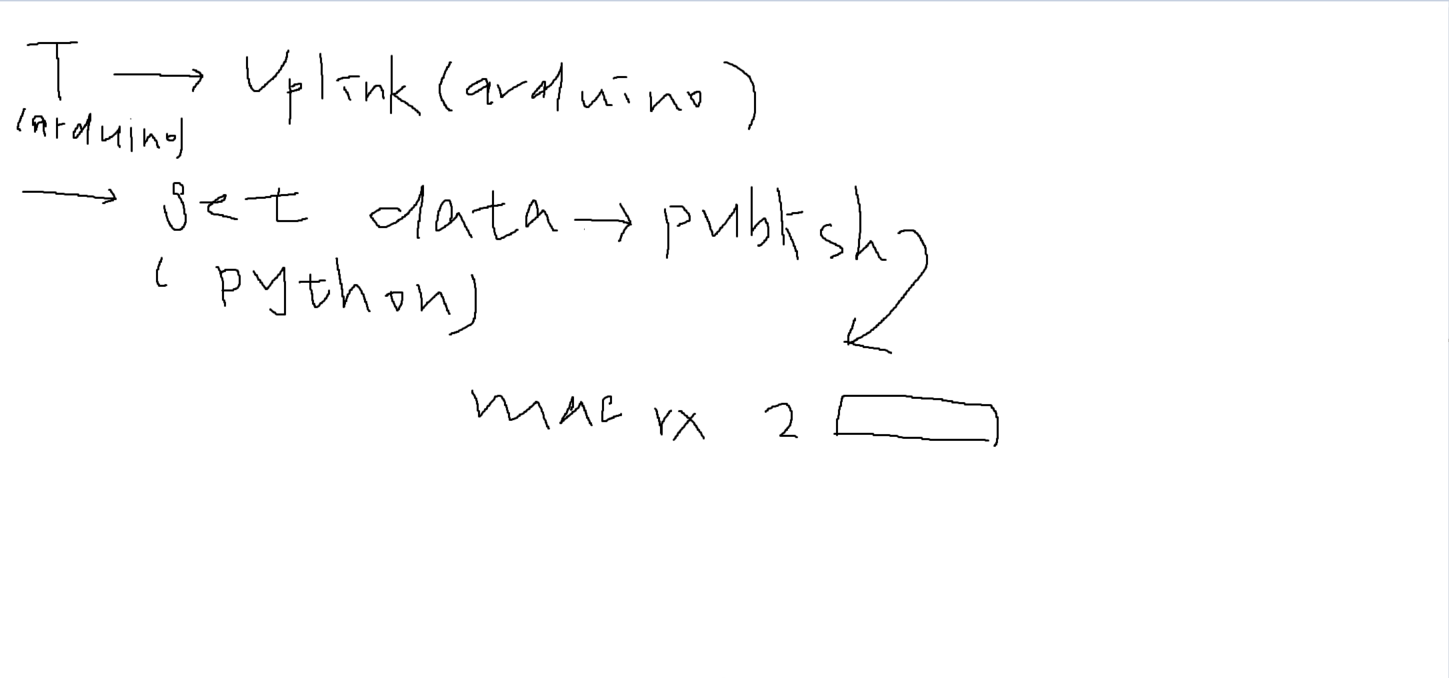 T → Uplink (arduino)
(arduino)
→ get data → publish
(python)
mac rx 2